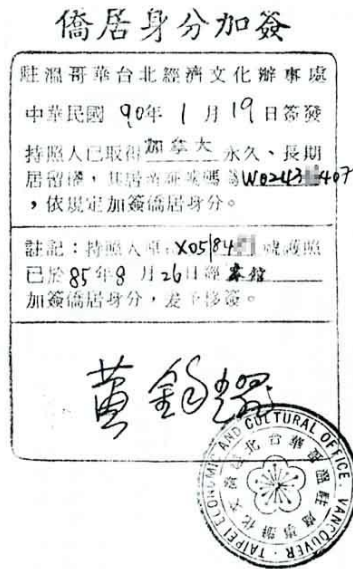 僑居身分加簽
駐溫哥華台北經濟文化辦事處
中華民國 90年 1 月 19 日簽發
持照人已取得加拿大 永久、長期
居留權,其居留證號碼為W0243 407
,依規定加簽僑居身分。
註記:持照人原X05184 號護照
已於85年8月26日經本館
加簽僑居身分,茲予移簽。
TAIPEI ECONOMIC AND CULTURAL OFFICE, VANCOUVER
駐溫哥華台北經濟文化辦事處